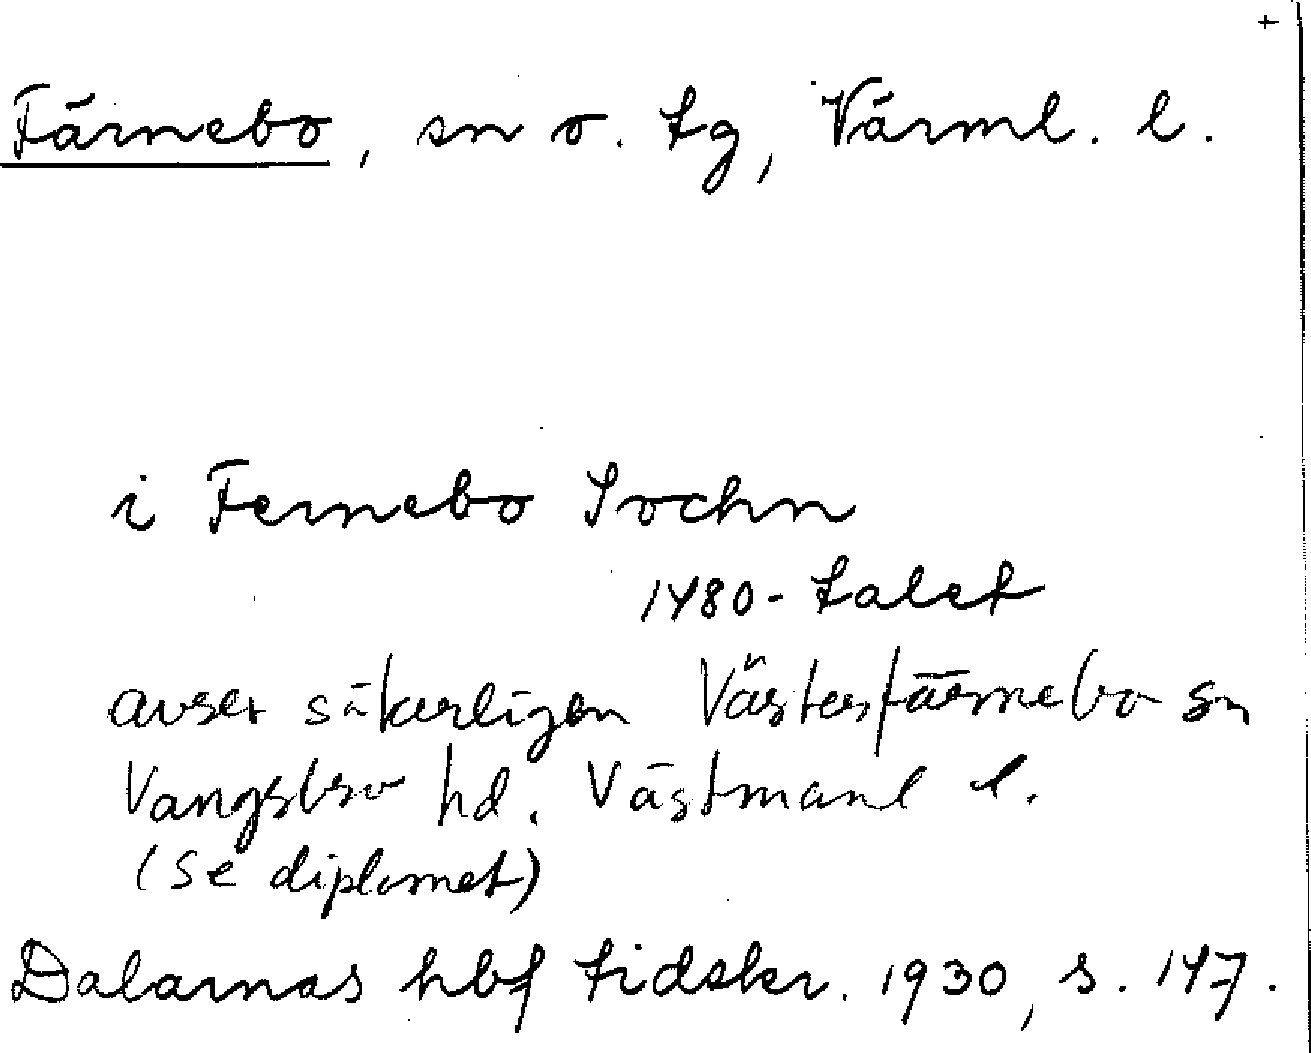 +
Färnebo, sn o. tg, Värml. l.
i Fernebo Sochn
1480-talet
avser säkerligen Västerfärnebo sn
Vangsbro hd. Västmanl l.
(se diplomet)
Dalarnas hbf tidskr. 1930, s. 147.